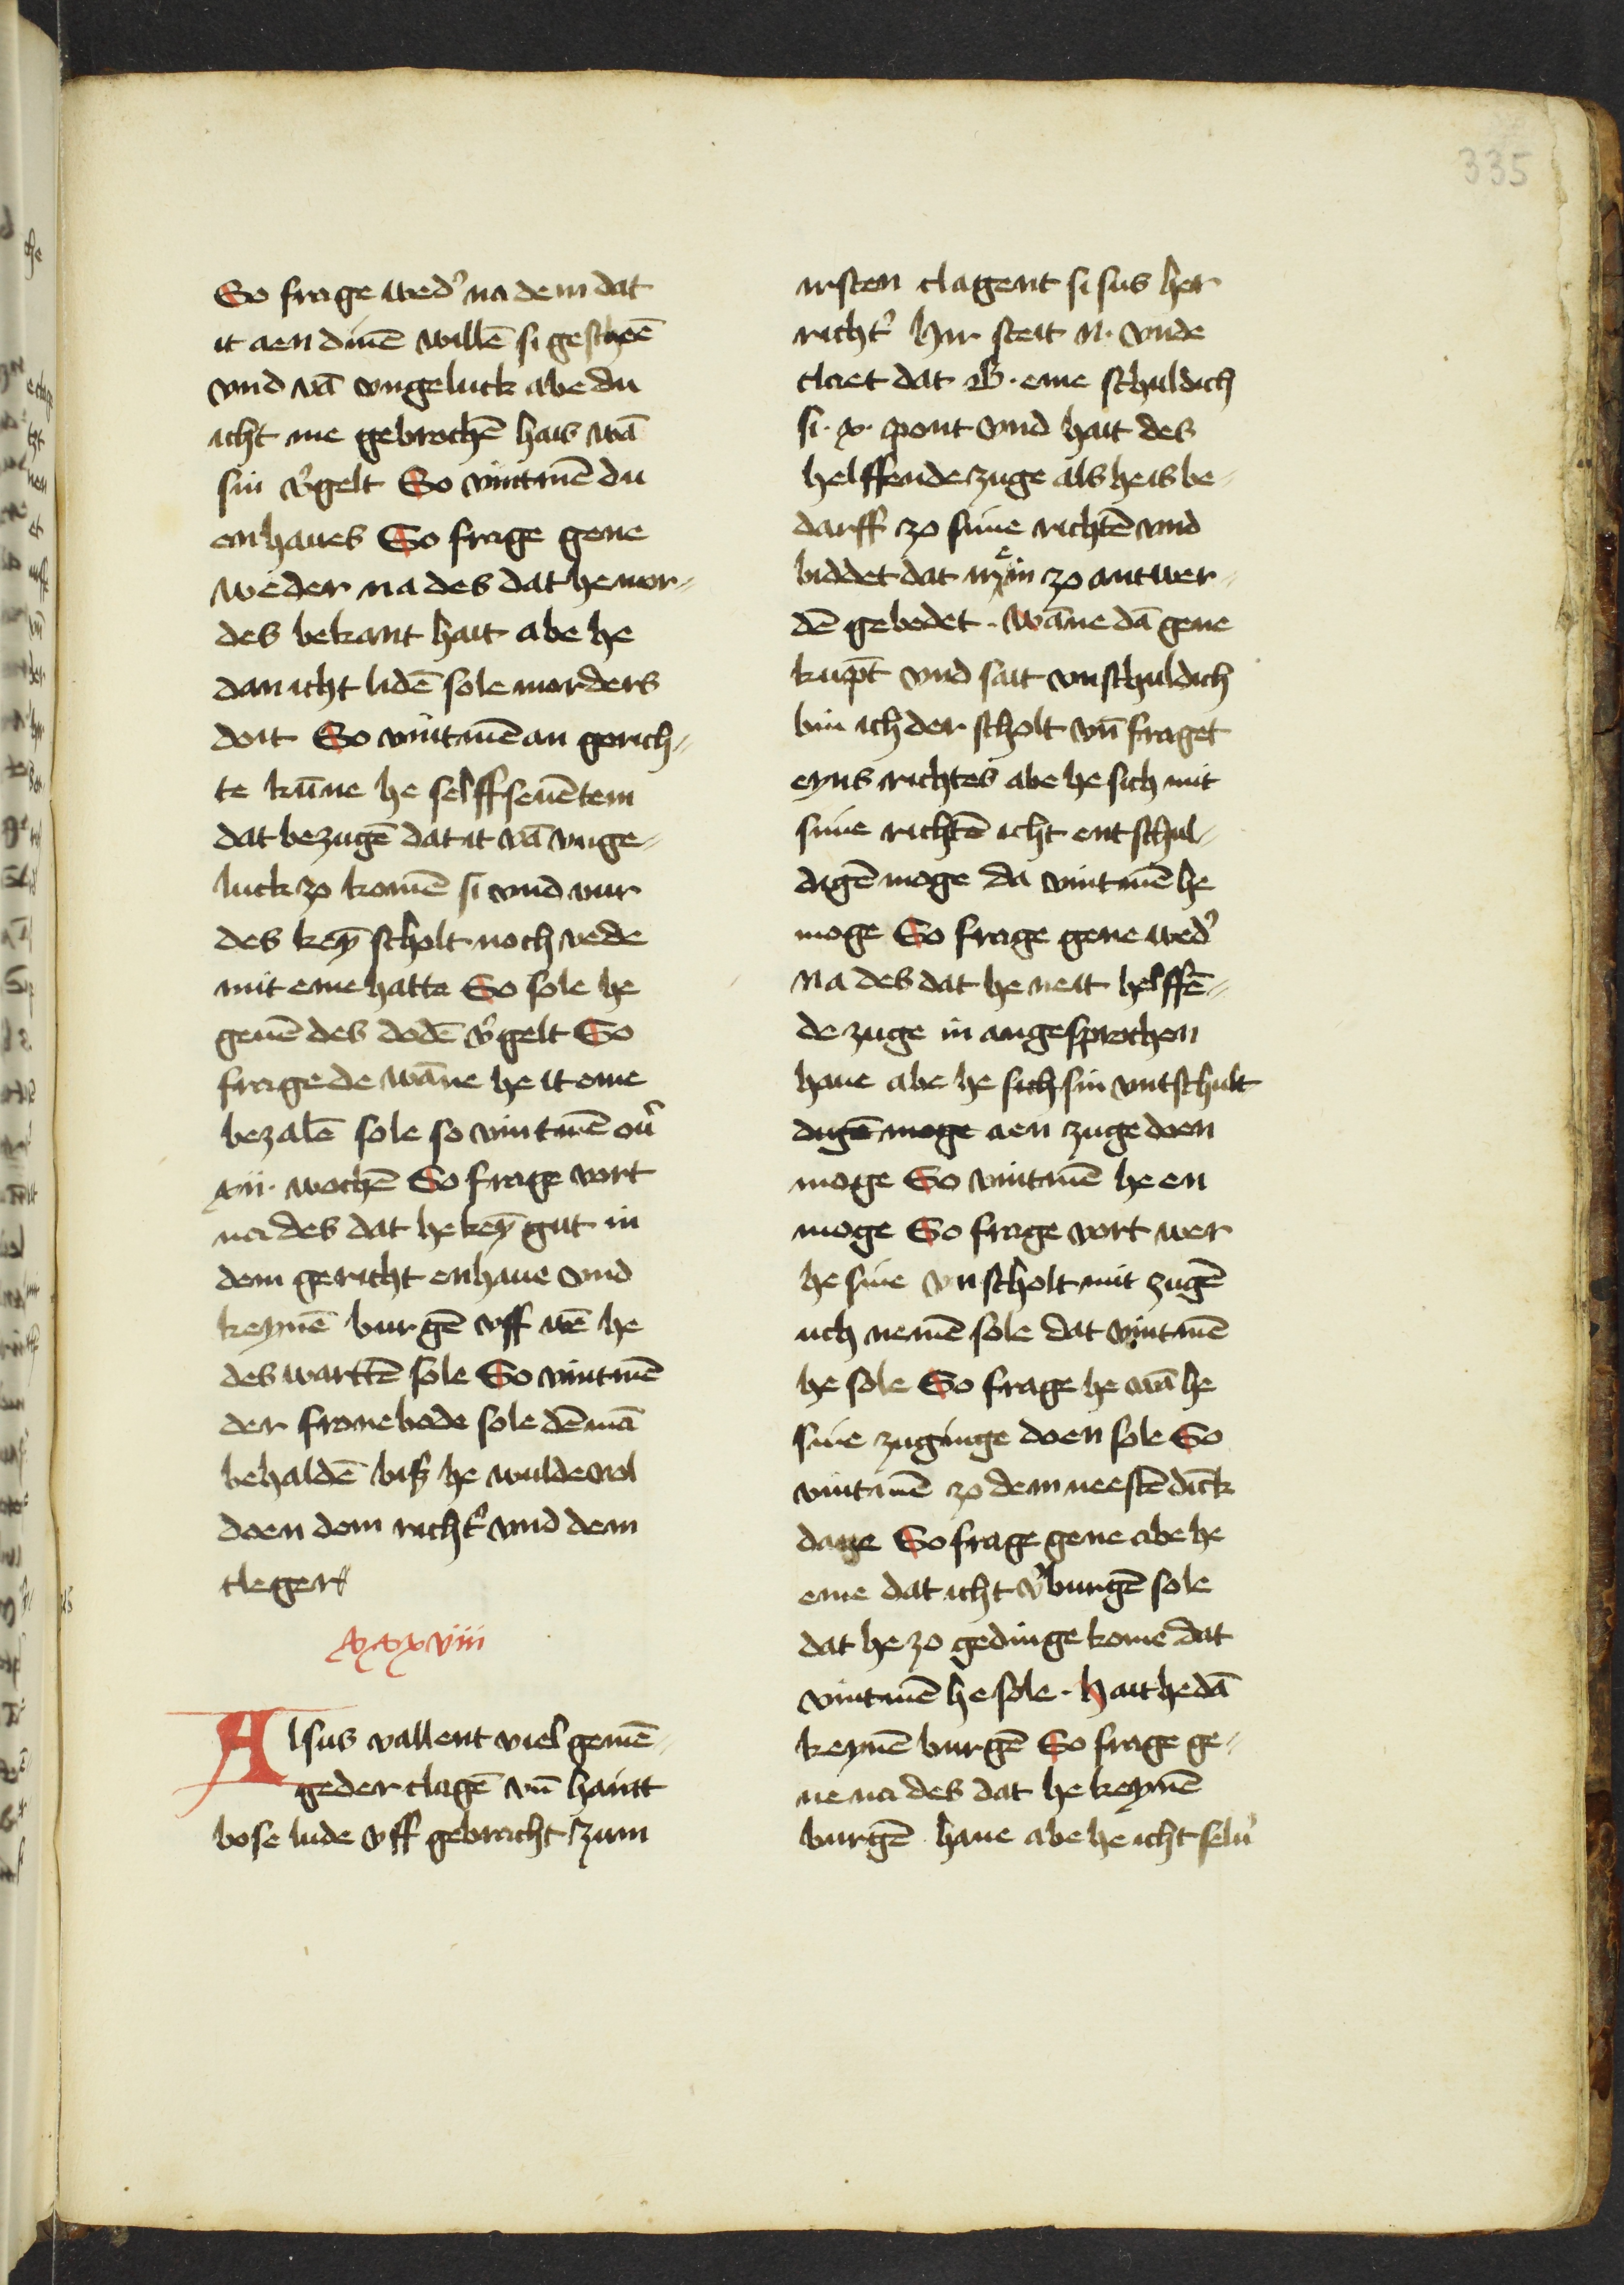 335
So frage wed' na dem dat
it aen dinē willē si gescheē
vnd vā vngeluck abe du
icht me gebrochē hais wā
sin w'gelt So vintmē du
enhaues So frage gene
weder na des dat he mor=
des bekant hait abe he
dan icht lidē sole morders
doit So vintmē an gerich=
te kūne he selffseuētem
dat bezugē dat it vā vnge=
luck zo komē si vnd vur
des keȳ scholt noch vede
mit eme hatte So sole he
geuē des dodē w'gelt So
frage de wāne he it eme
bezalē sole so vintmē ou'
xii. wochē So frage vort
na des dat he keȳ gut in
dem gericht enhaue vnd
keymē burgē vff wē he
des wartē sole So vintmē
der fronebode sole dē mā
behaldē bis he wulde vol
doen dem richt' vnd dem
cleger
xxxviii
Alsus vallent viel gemē=
geder clagē vn̄ haūt
bose lude vff gebracht zum
irsten clagent si sus her
richt' hir steit N. vnde
claet dat B. eme schuldich
si. x. pont vnd hait des
helffende zuge als he is be=
darff zo sime richtē vnd
biddet dat m̄e in zo antwer=
dē gebedet. Wāne dā gene
kūpt vnd sait vnschuldich
bin ich der scholt vn̄ fraget
eyns richtes abe he sich mit
sime richtē icht entschul=
digē moge da vintmē he
moge So frage gene wed'
na des dat he neit helffē=
de zuge in angesprochen
haue abe he sich sin vntschult
digē moge aen zuge doen
moge So vintmē he en
moge So frage vort wer
he sine vnscholt mit zugē
uch nemē sole dat vintmē
he sole So frage he wā he
sine zuginge doen sole So
vintmē zo dem neestē dīck
dage So frage gene abe he
eme dat icht v'burgē sole
dat he zo gedinge kome dat
vintmē he sole. Hait he dā
keymē burgē So frage ge=
ne na des dat he keymē
burgē haue abe he icht selu'